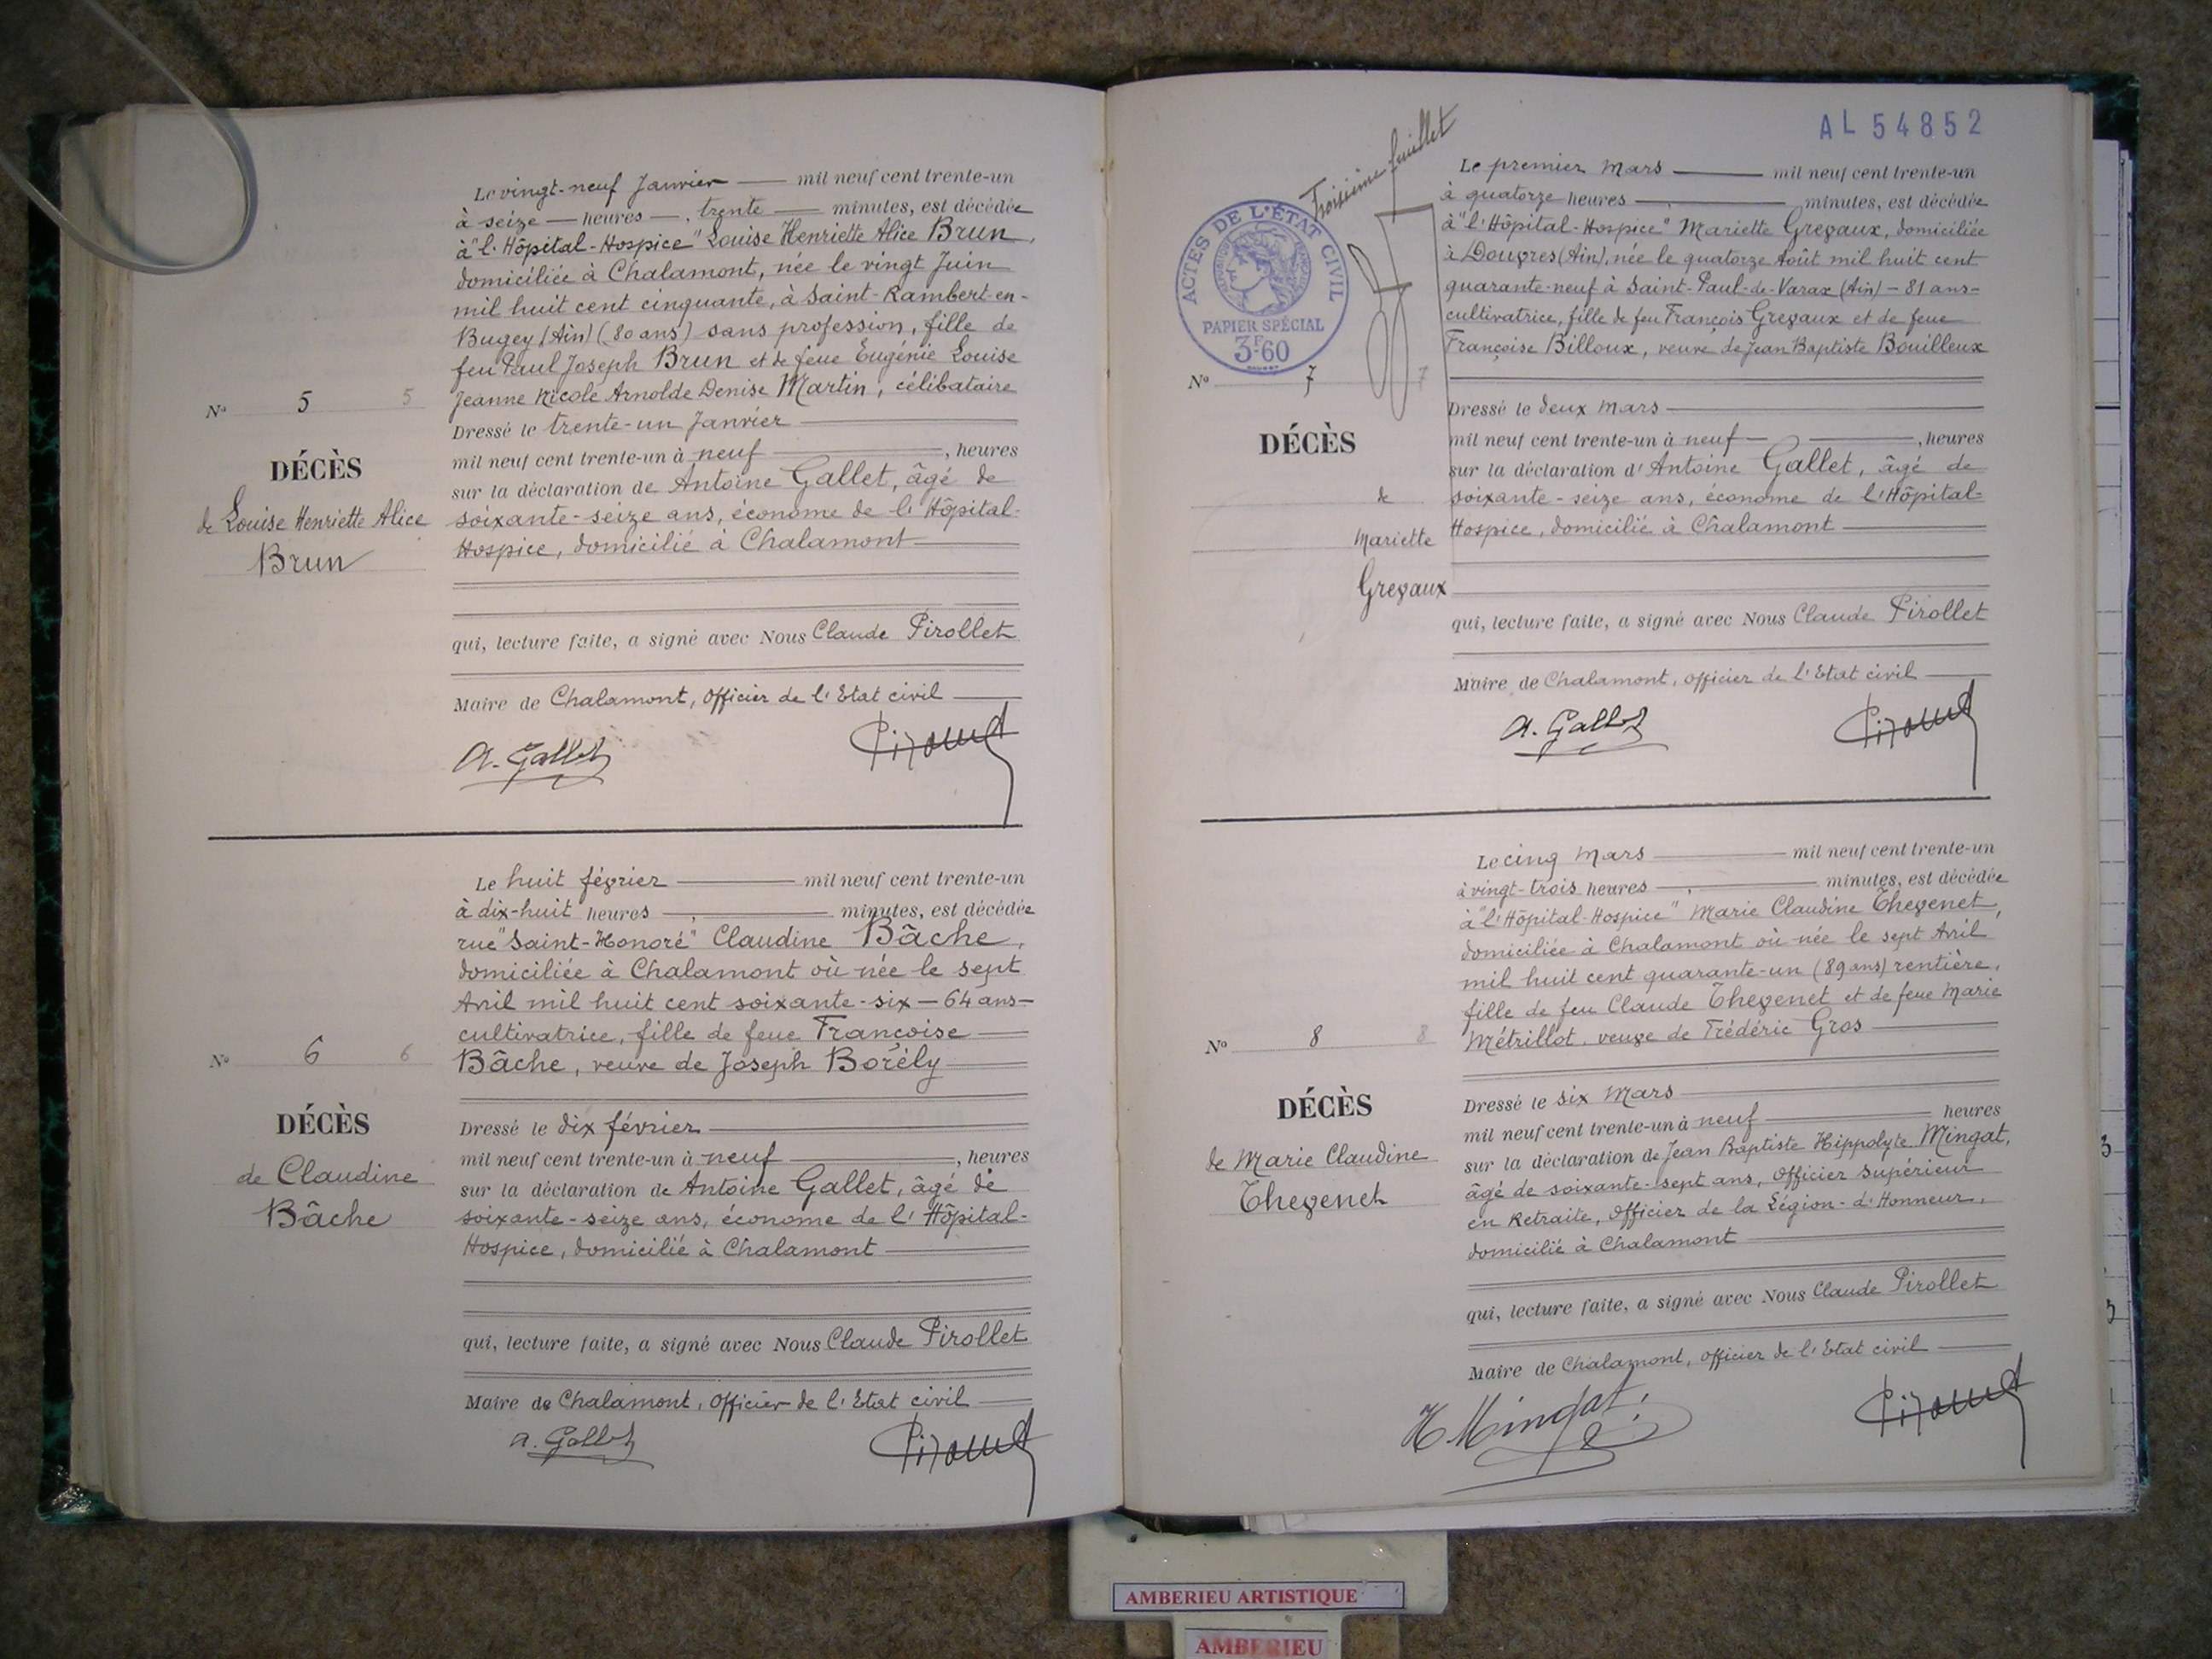 Le vingt-neuf Janvier — mil neuf cent trente-un
à seize — heures — , trente — minutes, est décédée
à "l'Hôpital-Hospice" Louise Henriette Alice Brun,
domiciliée à Chalamont, née le vingt Juin
mil huit cent cinquante, à Saint-Rambert-en-
Bugey (Ain) (80 ans) sans profession, fille de
feu Paul Joseph Brun et de feue Eugénie Louise
Jeanne Nicole Arnolde Denise Martin, célibataire
Dressé le trente-un Janvier
mil neuf cent trente-un à neuf , heures
sur la déclaration de Antoine Gallet, âgé de
soixante-seize ans, économe de l'Hôpital-
Hospice, domicilié à Chalamont
qui, lecture faite, a signé avec Nous Claude Pirollet
Maire de Chalamont, Officier de l'Etat civil
A. Gallet
Nº 5 5
DÉCÈS
de Louise Henriette Alice
Brun
Le huit février — mil neuf cent trente-un
à dix-huit heures — , — minutes, est décédée
rue "Saint-Honoré" Claudine Bâche,
domiciliée à Chalamont où née le sept
Avril mil huit cent soixante-six — 64 ans —
cultivatrice, fille de feue Françoise
Bâche, veuve de Joseph Borély
Dressé le dix février
mil neuf cent trente-un à neuf , heures
sur la déclaration de Antoine Gallet, âgé de
soixante-seize ans, économe de l'Hôpital-
Hospice, domicilié à Chalamont
qui, lecture faite, a signé avec Nous Claude Pirollet
Maire de Chalamont, Officier de l'Etat civil
A. Gallet
Nº 6 6
DÉCÈS
de Claudine
Bâche
AL 54852
Troisième feuillet
ACTES DE L'ÉTAT CIVIL
PAPIER SPÉCIAL
3F60
Le premier Mars — mil neuf cent trente-un
à quatorze heures — , — minutes, est décédée
à "l'Hôpital-Hospice" Mariette Grevaux, domiciliée
à Douvres (Ain), née le quatorze Août mil huit cent
quarante-neuf à Saint-Paul-de-Varax (Ain) — 81 ans —
cultivatrice, fille de feu François Grevaux et de feue
Françoise Billoux, veuve de Jean Baptiste Bouilleux
Dressé le deux Mars
mil neuf cent trente-un à neuf — , heures
sur la déclaration d'Antoine Gallet, âgé de
soixante-seize ans, économe de l'Hôpital-
Hospice, domicilié à Chalamont
qui, lecture faite, a signé avec Nous Claude Pirollet
Maire de Chalamont, officier de l'Etat civil
A. Gallet
Nº 7 7
DÉCÈS
de
Mariette
Grevaux
Le cinq Mars — mil neuf cent trente-un
à vingt-trois heures — , — minutes, est décédée
à "l'Hôpital-Hospice" Marie Claudine Thevenet,
domiciliée à Chalamont où née le sept Avril
mil huit cent quarante-un (89 ans) rentière,
fille de feu Claude Thevenet et de feue Marie
Métrillot, veuve de Frédéric Gros
Dressé le six Mars
mil neuf cent trente-un à neuf heures
sur la déclaration de Jean Baptiste Hippolyte Mingat,
âgé de soixante-sept ans, Officier Supérieur
en Retraite, Officier de la Légion-d'Honneur,
domicilié à Chalamont
qui, lecture faite, a signé avec Nous Claude Pirollet
Maire de Chalamont, officier de l'Etat civil
H Mingat
Nº 8 8
DÉCÈS
de Marie Claudine
Thevenet
AMBERIEU ARTISTIQUE
AMBERIEU